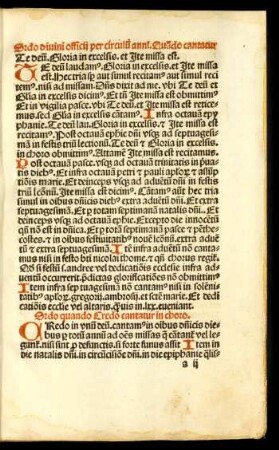 Ordo diuini officij per circulū anni. Quādo cantatur
Te deū. Gloria in excelsis. et Ite missa est.
TE deū laudam9. Gloria in excelsis. et Ite missa
est. Hec tria sp aut simul recitam9 aut simul reci
tem9. nisi ad missam. Dn̄s dixit ad me. vbi Te deū et
Glia in excelsis dicim9. Et tn̄ Ite missa est obmittim9
Et in vigilia pasce. vbi Te deū et Ite missa est retice
mus. sed Glia in excelsis cātam9. Infra octauā epy
phanie. Te deū lau. Gloria in excelsis. et Ite missa est
recitam9. Post octauā ephie dn̄i vsq3 ad septuagesi
mā in festis triū lectionū. Te deū et Gloria in excelsis.
in choro obmittim9. Attamē Ite missa est recitamus.
Post octauā pasce. vsq3 ad octauā trinitatis in p̄ua
tis dieb9. Et infra octauā petri et pauli aplor. et assū
ptiōis marie. Et deinceps vsq3 ad aduētū dn̄i in festis
triū lectionū. Ite missa est nō dicim9. Cātam9 aūt hec tria
simul in oībus dn̄icis dieb9 extra aduētū dn̄i. Et extra
septuagesimā. Et p totam septimanā natalis dn̄i. Et
deinceps vsq3 ad octauā ephie. Excepto die innocētū
qñ nō est in dn̄ica. Et p totā septimanā pasce et pēthe
costes. et in oībus festiuitatib9 nouē lcōnū. extra aduē
tū et extra septuagesimā. Infra aduētū nō cantam9
nisi in festo bti nicolai thome. et qñ chorus regit̄.
Qd si festū s. andree vel dedicatiōis ecclesie infra ad
uentū occurrerit. p̄dictas glorificatiōes nō obmittim9
Item infra septuagesimā nō cantam9 nisi in solenni
tatib9 aplor. gregorij. ambrosij. et sctē marie. Et dedi
catiōis ecclie vel altaris. si quis in .lxx. eueniant.
Ordo quando Credo cantatur in choro.
CRedo in vnū deū. cantam9 in oībus dn̄icis die
bus p totū annū ad oēs missas q̄ cātant̄ vel le
gunt̄. nisi sint p defunctis. si forte funus assit. Item in
die natalis dn̄i. in circūcisiōe dn̄i. in die epiphanie q̄lis
a ij